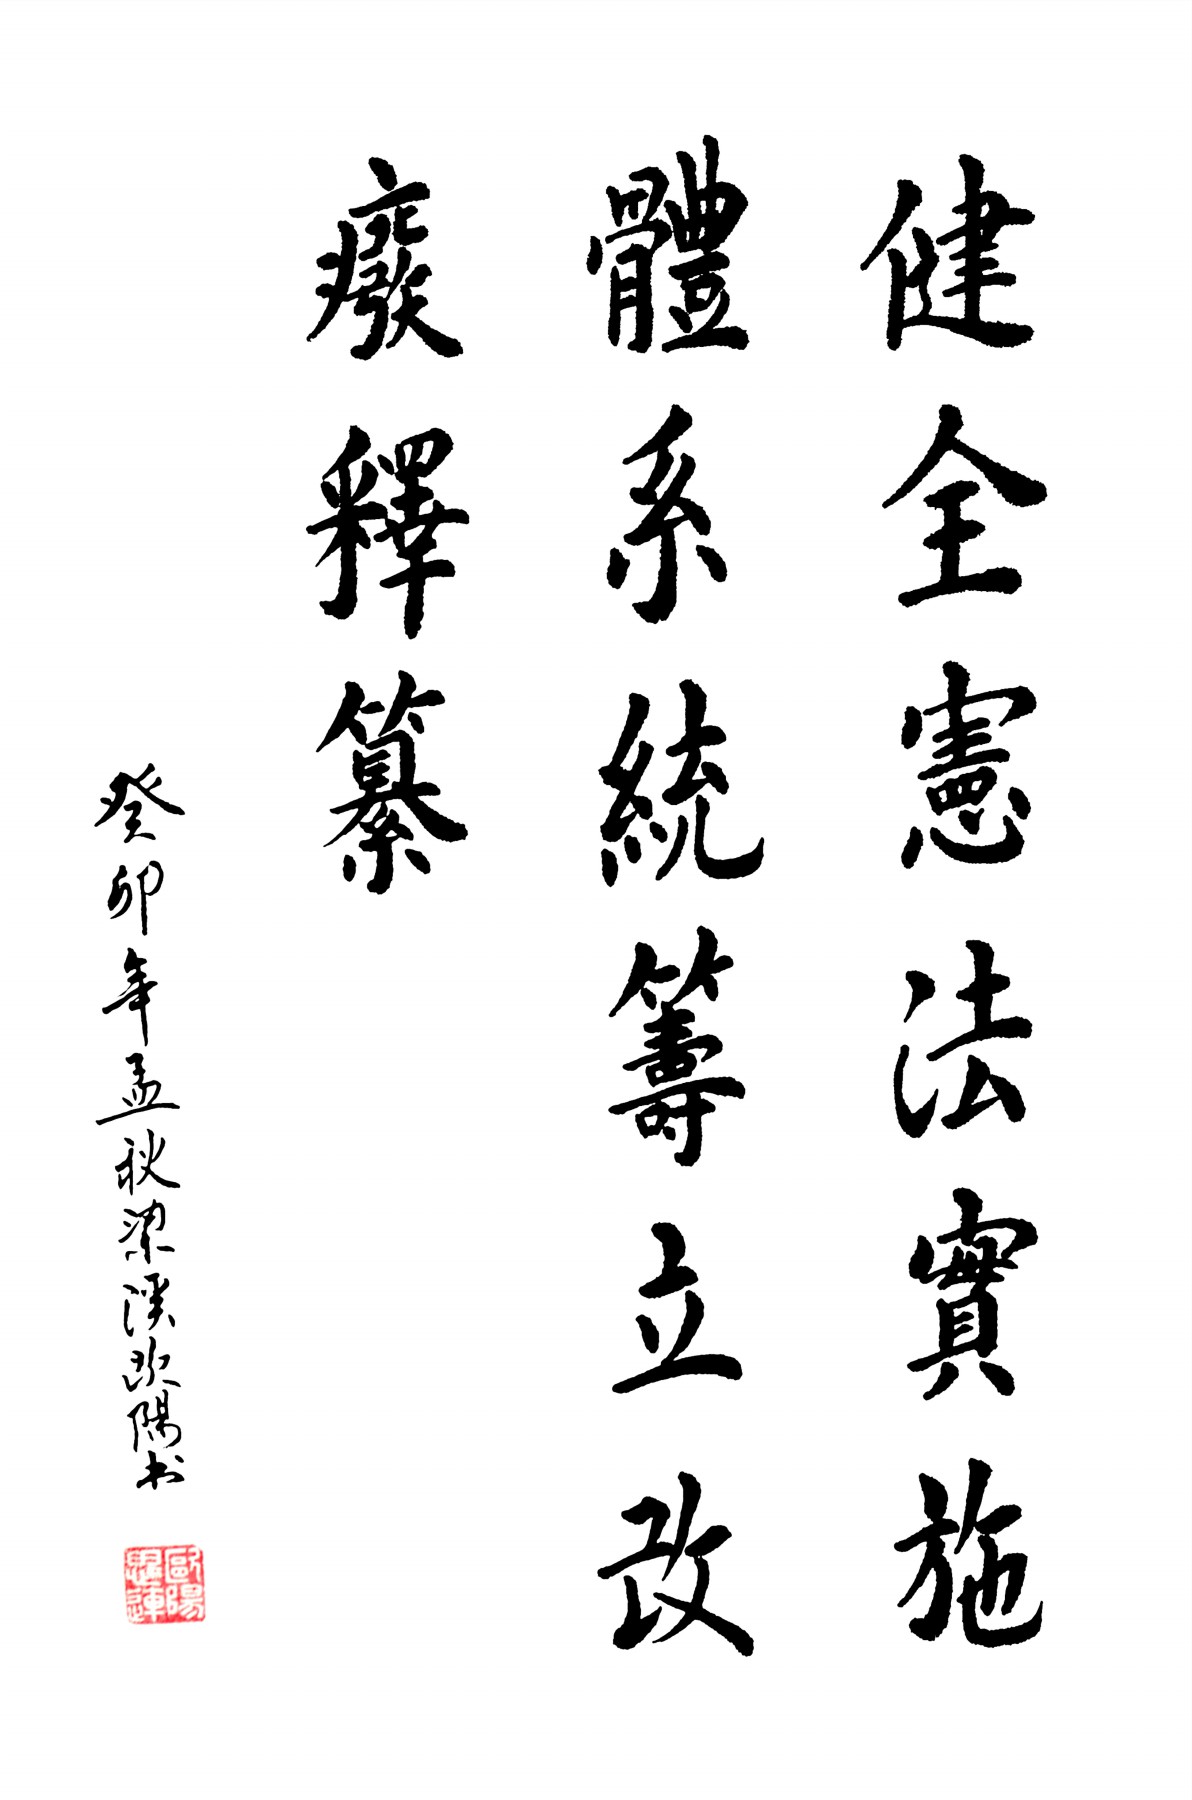 健全憲法實施
體系統籌立改
癈釋纂
癸卯年孟秋梁溪欧陽书
歐陽